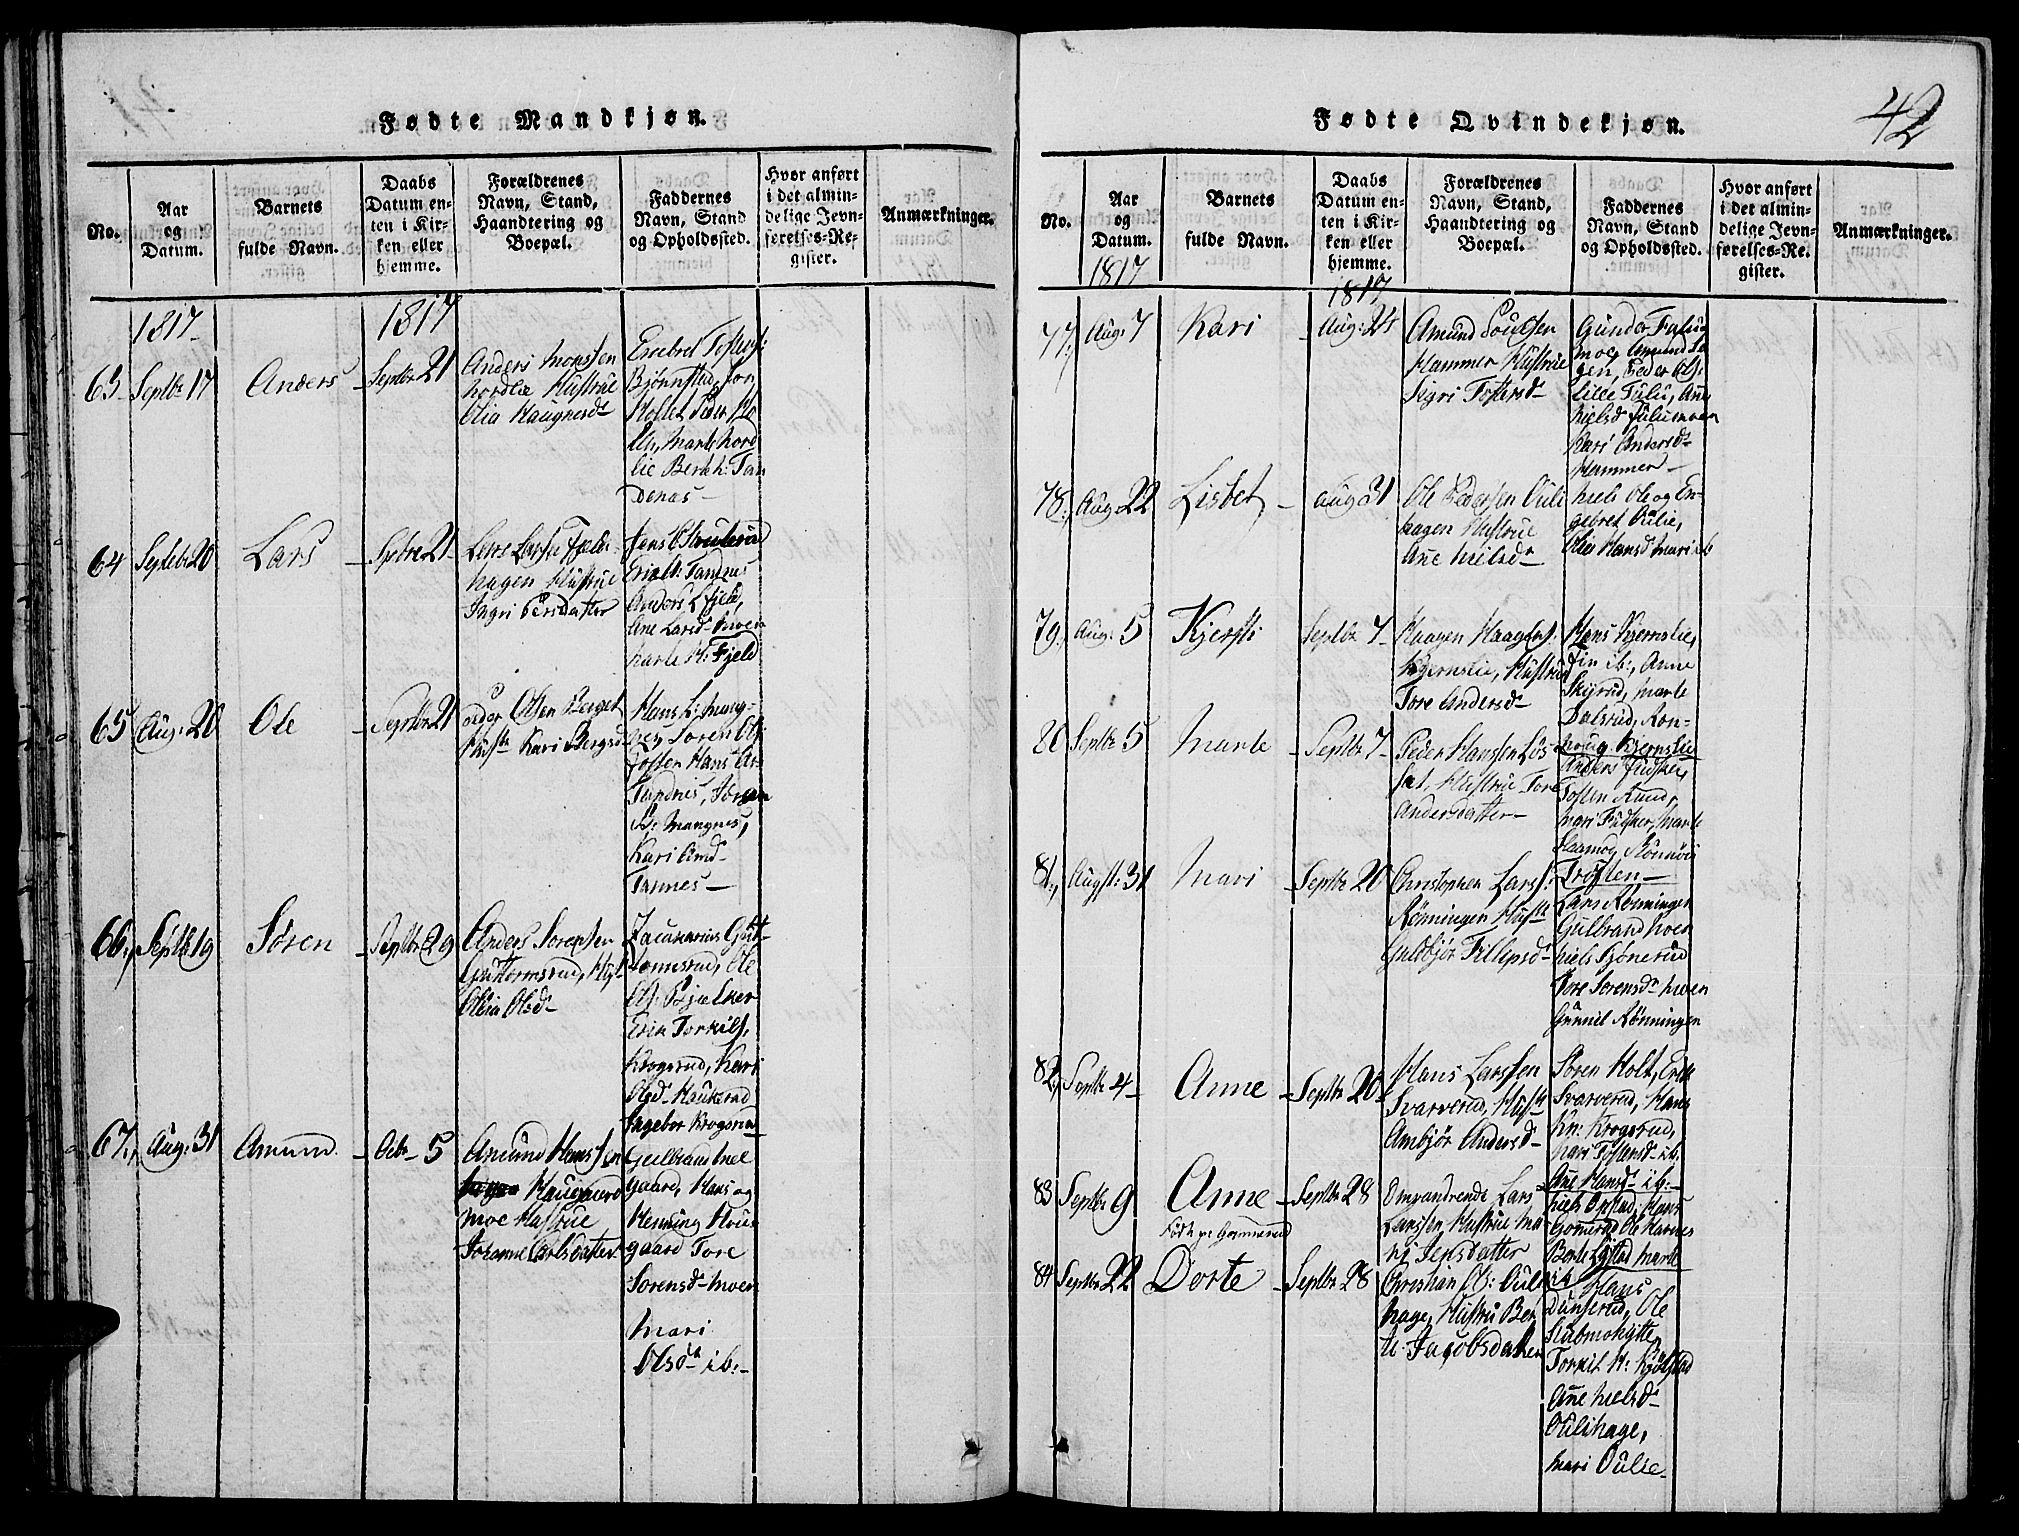 Fødte Mandkjøn.
No.
Aar
og
Datum.
Barnets
fulde Navn.
Daabs
Datum en-
ten i Kir-
ken eller
hjemme.
Forældrenes
Navn, Stand,
Haandtering og
Boepæl.
Faddernes
Navn, Stand
og Opholdssted.
Hvor anført
i det almin-
delige Jevn-
førelses-Re-
gister.
Anmærkninger.
1817
1817
63
Septbr 17
Anders
Septbr 21
Anders Monssen
Nordlie Hustrue
Olia Haugnersd
Bjørnstad
Holtet Peder
Marte Nord
lie
64
Septbr 20
Lars
Sepbr 21
Lars Larssen Fjeld
hagen Hustrue
Ingri Persdatter
Anders L Fjeld,
Ane Larsd Moen
Marte H: Fjeld
65
Aug: 20
Ole
Septbr 21
Peder Olsen Berget
Hust Kari Bergsd
Hans L: Mang-
nes Søren Ol:
Hans
Tandnes, Jørgen
Mangnes,
Kari Amd
Tannes
66.
Septbr 19
Søren
Septbr 29
Anders Sørensen
Guttormsrud, Hust
Olia Olsd
Zacharias Gut-
tormsrud, Ole
Ol: Bjælker
Erik Torkils:
Krogsrud, Kari
Olsd Haukerud
Ingebor Krogsrud
67.
Aug: 31
Amund.
Octr 5
Amund Hanssen
Hauguard
moe Hustrue
Johanne Carlsdatter
Gulbrand
gaard, Hans og
Henning Hou
gaard Tore
Sorensd Moen
Mari
Olsdtr ib:
Fødte Qvindekjøn.
42
No.
Aar
og
Datum.
1817
Barnets
fulde Navn.
Daabs
Datum en-
ten i Kir-
ken eller
hjemme.
1817
Forældrenes
Navn, Stand,
Haandtering og
Boepæl.
Faddernes
Navn, Stand
og Opholdssted.
Hvor anført
i det almin-
delige Jevn-
førelses-Re-
gister.
Anmærkninger.
77.
Aug: 7
Kari
Aug: 24
Amund Poulsen
Hammer Hustrue
Sigri Tostersd
Gunder
moe, Amund
gen, Peder Ol:
Lille Tulu, Ane
Nielsd Tulumoen
Kari Andersd
Hammer
78.
Aug: 22
Lisbet
Aug 31
Ole Pedersen Ouli
hagen Hustrue
Ane Nielsd
Niels Ole og En-
gebret Oulie,
Olia Hansd Mari ib
79.
Aug: 5
Kjersti
Septbr 7
Haagen Haagens:
Kjernslie, Hustrue
Tore Andersd
Hans Kjernslie,
ib:, Anne
Skjyrud, Marte
Dalsrud, Ron-
noug Kjernslie
80
Septbr 5
Marte
Septbr 7
Peder Hanssen Løs
set, Hustrue Tore
Andersdatter
Anders Fudsker,
Tosten Ruud,
Mari Fudsker, Marte
Trøften
81.
Augst: 31
Mari
Septbr 20
Christopher Larss:
Rønningen Hust
Guldbjør Fillipsd
Lars Rønningen
Gulbrand Moen
Niels Tjønerud
Tore Sorensd Moen
Gunnil Rønningen
82.
Septbr 4
Anne
Septbr 20
Hans Larssen
Svarverud, Hust
Ambjør Andersd
Søren Holt, Erik
Svarverud, Hans
Kn: Krogsrud,
Mari Tostersd ib:
Ane Hansd ib:
83
Septbr 9
Anne
Septbr 28
Omvandrende Lars
Larssen, Hustrue Ma
ri Jensdatter
Niels Opstad, Hans
Gomerud Ole Harnes
84
Septbr 22
Dorte
Septbr 28
Christian Ol: Ouli
hage, Hustru Ber
te Jacobsdatter
Hans
Dunserud, Ole
Stubmohytte,
Torkil H: Kjølstad
Ane Nielsd
Oulihage,
Mari Oulie